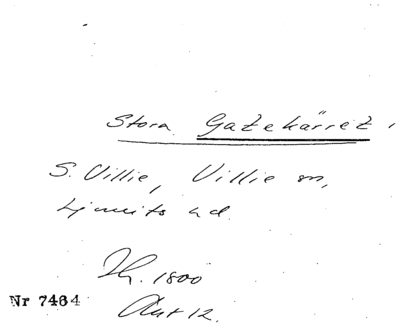 Stora Gatekärret,
S. Villie, Villie sn,
Ljunits hd.
Th. 1800
Akt 12.
Nr 7464